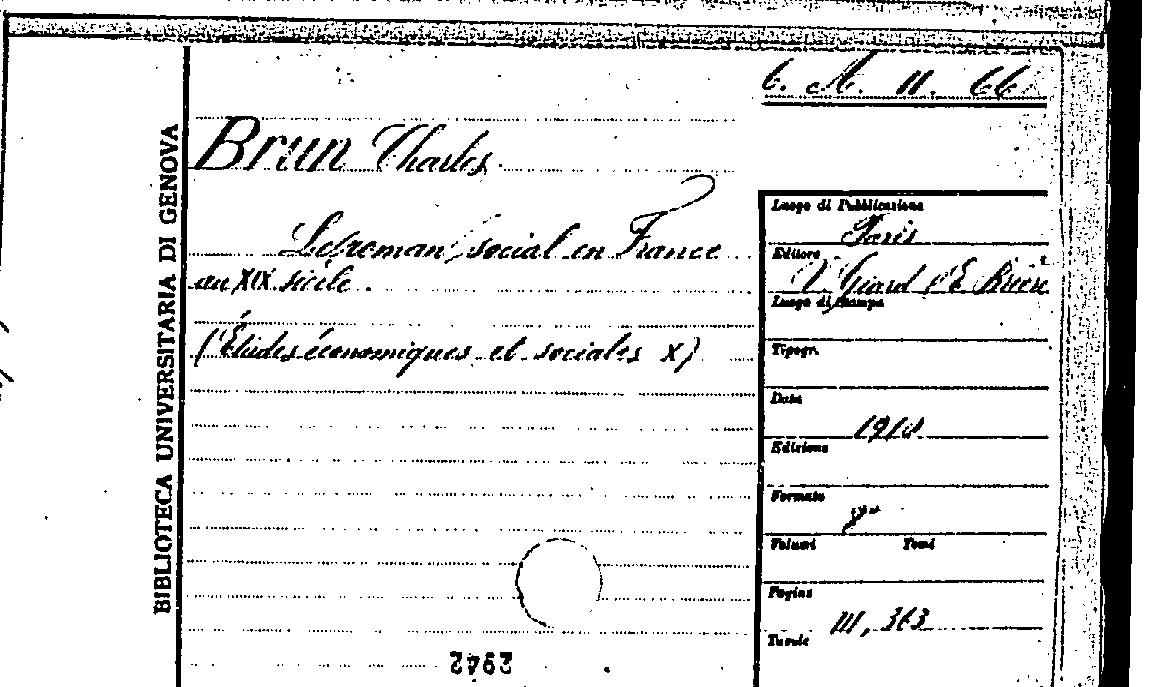 6. A. 11. 66
BIBLIOTECA UNIVERSITARIA DI GENOVA
Brun Charles
Le roman social en France
au XIX siècle.
(Études économiques et sociales X)
Luogo di Pubblicazione
Paris
Editore
V. Giard & E. Brière
Luogo di stampa
Tipogr.
Data
1910
Edizione
Formato
8°
Volumi Tomi
Pagine
III, 363
Tavole
2942